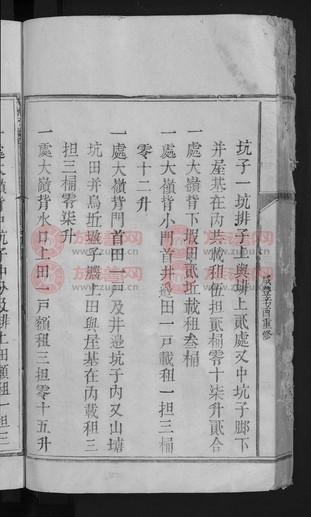 坑子一坑排子上與排上貳處又中坑子脚下
并屋基在內共載租伍担貳桶零十柒升貳合
一處大嶺背下塅田貳近載租叁桶
一處大嶺背小門首井邊田一戶載租一担三桶
零十二升
一處大嶺背門首田一戶及井邊坑子內又山塘
坑田并烏近墩子墈上田與屋基在內載租三
担三桶零柒升
一處大嶺背水口上田一戶額租三担零十五升
重修
族譜网